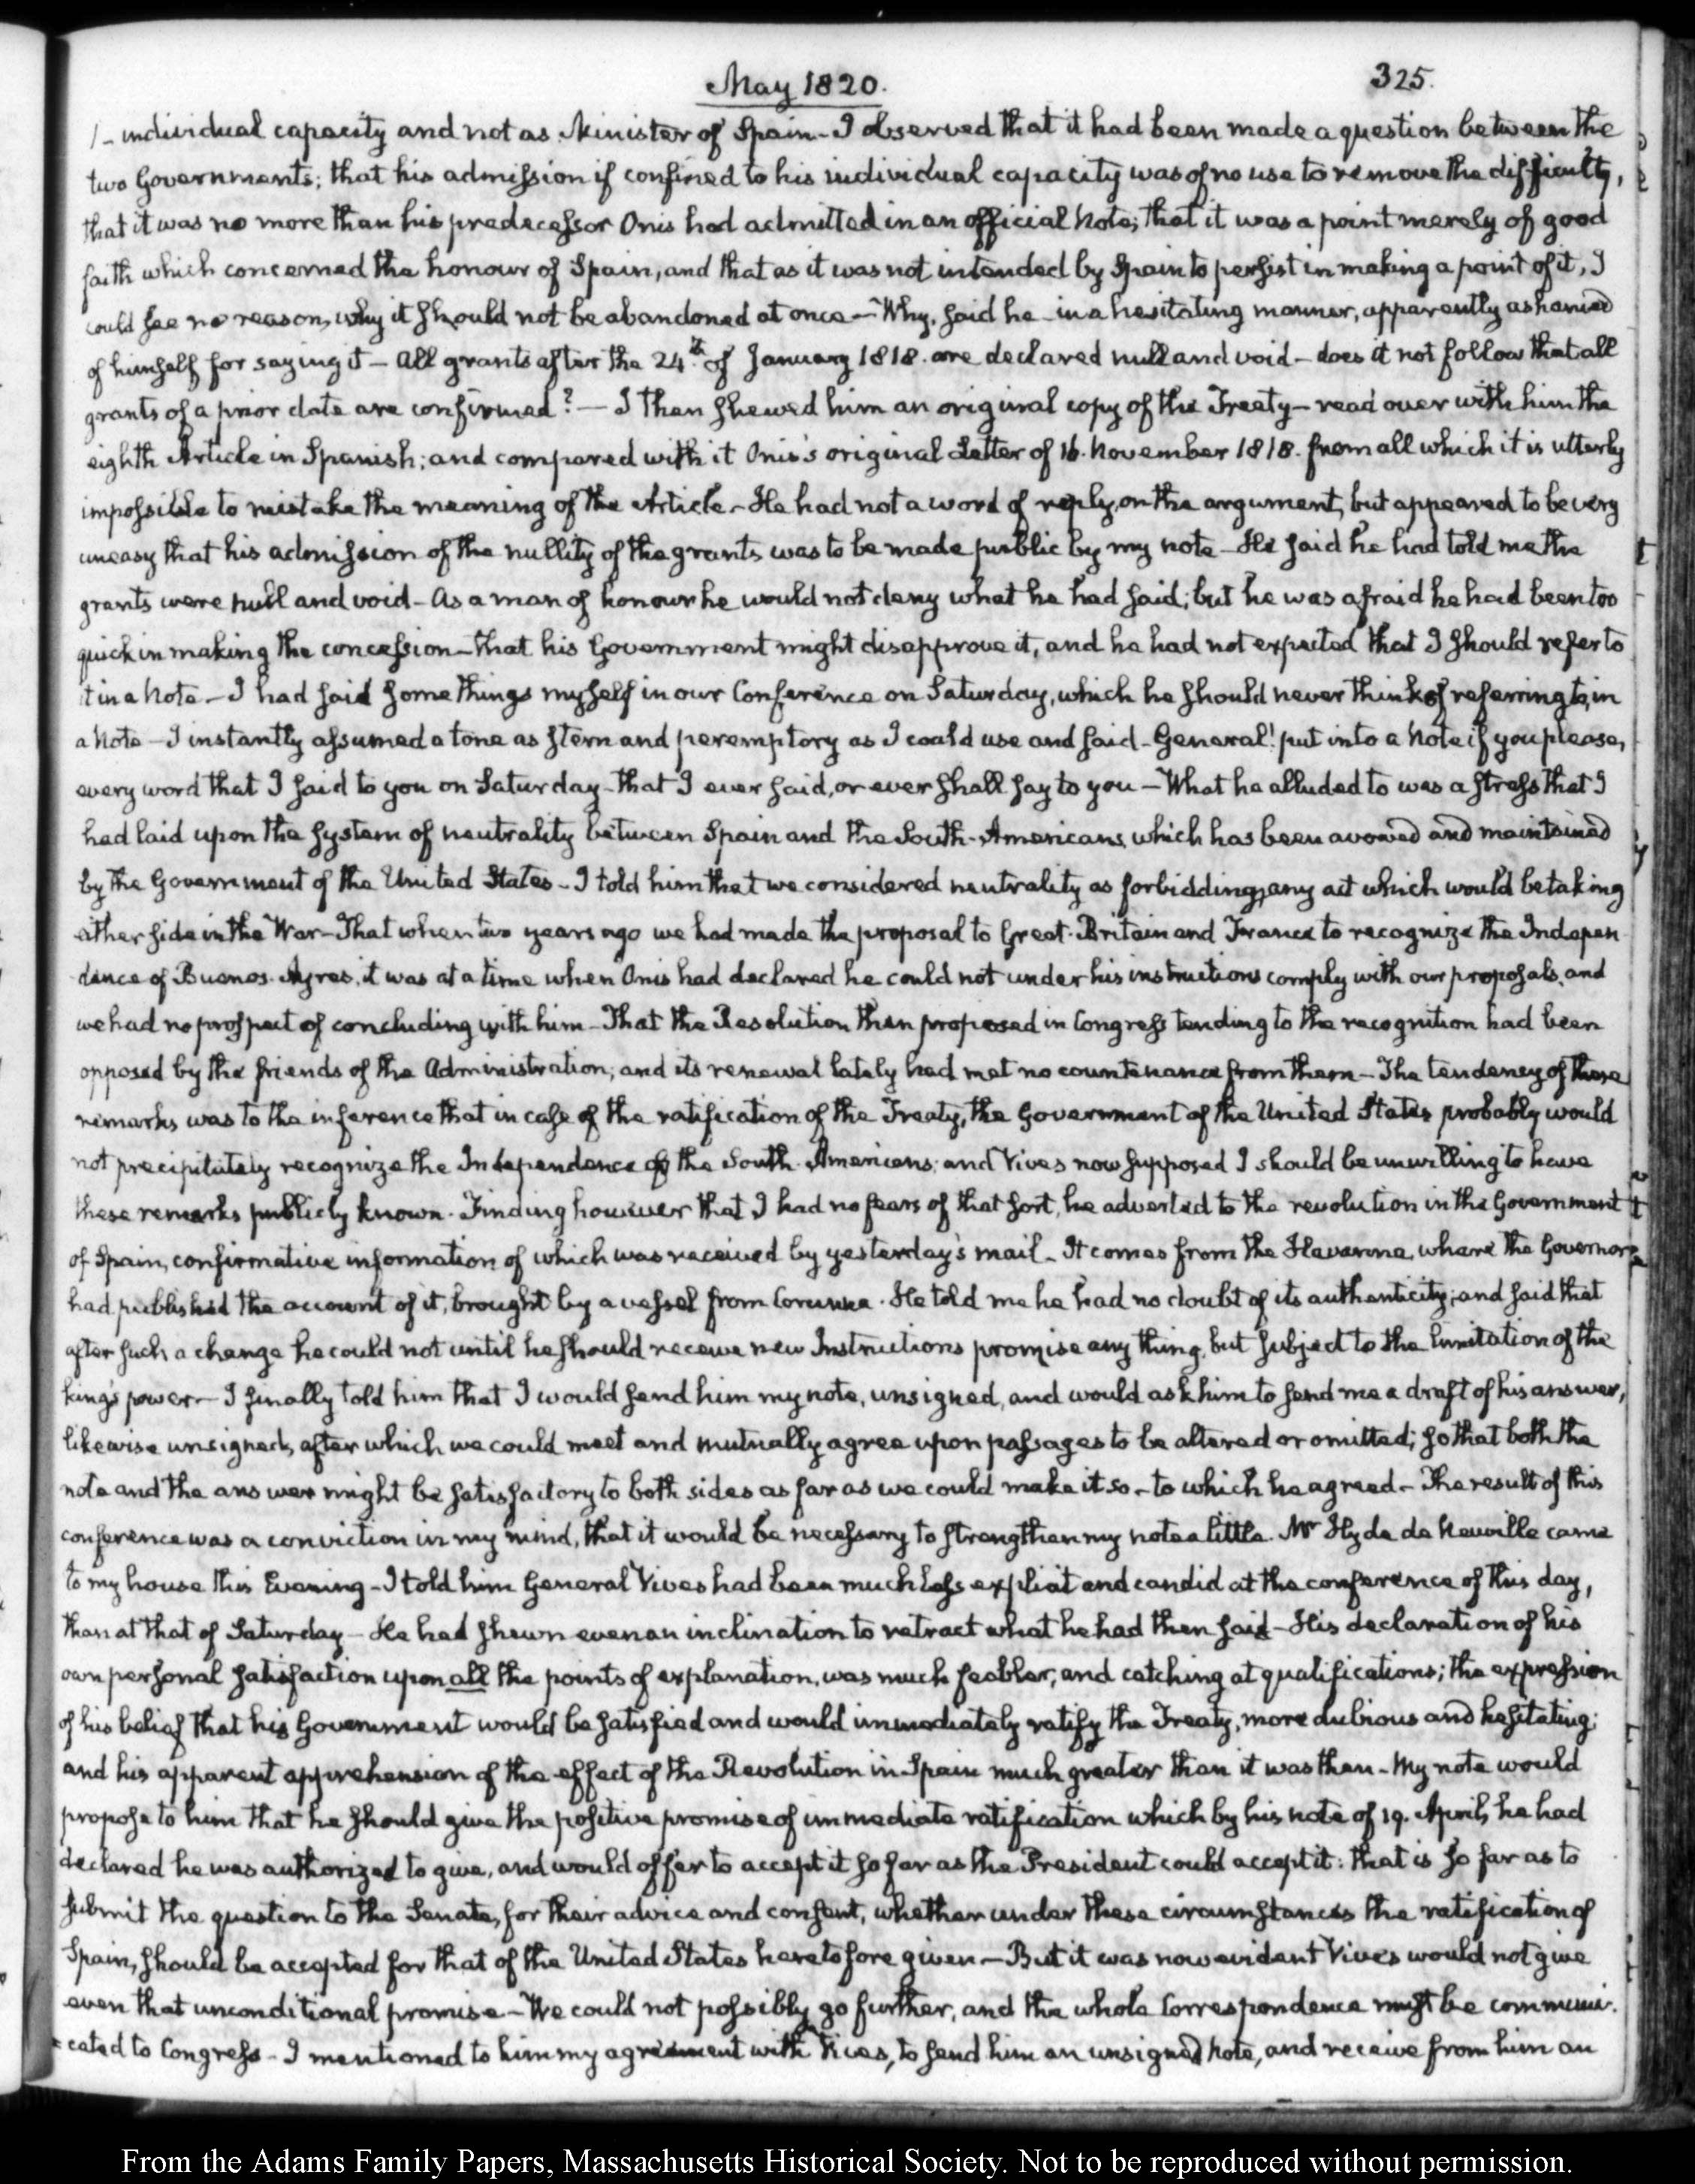 May 1820.
325.
1- individual capacity and not as Minister of Spain - I observed that it had been made a question between the
two Governments; that his admission if confined to his individual capacity was of no use to remove the difficulty,
that it was no more than his predecessor Onis had admitted in an official Note; that it was a point merely of good
faith which concerned the honour of Spain, and that as it was not intended by Spain to persist in making a point of it, I
could see no reason, why it should not be abandoned at once — Why, said he - in a hesitating manner, apparently ashamed
of himself for saying it - All grants after the 24th. of January 1818. are declared null and void - does it not follow that all
grants of a prior date are confirmed? — I then shewed him an original copy of the Treaty - read over with him the
eighth Article in Spanish; and compared with it Onis's original Letter of 16. November 1818. from all which it is utterly
impossible to mistake the meaning of the Article - He had not a word of reply, on the argument, but appeared to be very
uneasy that his admission of the nullity of the grants was to be made public by my note - He said he had told me the
grants were null and void - As a man of honour he would not deny what he had said; but he was afraid he had been too
quick in making the concession - that his Government might disapprove it, and he had not expected that I should refer to
it in a Note - I had said some things myself in our Conference on Saturday, which he should never think of referring to, in
a Note - I instantly assumed a tone as stern and peremptory as I could use and said - General! put into a Note if you please,
every word that I said to you on Saturday - that I ever said, or ever shall say to you — What he alluded to was a stress that I
had laid upon the system of neutrality between Spain and the South-Americans, which has been avowed and maintained
by the Government of the United States - I told him that we considered neutrality as forbidding, any act which would be taking
either side in the War - That when two years ago we had made the proposal to Great-Britain and France to recognize the Indepen
dence of Buenos-Ayres, it was at a time when Onis had declared he could not under his instructions comply with our proposals, and
we had no prospect of concluding with him - That the Resolution then proposed in Congress tending to the recognition had been
opposed by the friends of the Administration; and its renewal lately had met no countenance from them - The tendency of these
remarks was to the inference that in case of the ratification of the Treaty, the Government of the United States probably would
not precipitately recognize the Independence of the South-Americans; and Vives now supposed I should be unwilling to have
these remarks publicly known. Finding however that I had no fears of that sort, he adverted to the revolution in the Government
of Spain, confirmative information of which was received by yesterday's mail - It comes from the Havanna, where the Governor
had published the account of it, brought by a vessel from Corunna. He told me he had no doubt of its authenticity; and said that
after such a change he could not until he should receive new Instructions promise any thing, but subject to the limitation of the
king's power - I finally told him that I would send him my note, unsigned, and would ask him to send me a draft of his answer,
likewise unsigned, after which we could meet and mutually agree upon passages to be altered or omitted; so that both the
note and the answer might be satisfactory to both sides as far as we could make it so - to which he agreed - The result of this
conference was a conviction in my mind, that it would be necessary to strengthen my note a little. Mr Hyde de Neuville came
to my house this Evening - I told him General Vives had been much less explicit and candid at the conference of this day,
than at that of Saturday - He had shewn even an inclination to retract what he had then said - His declaration of his
own personal satisfaction upon all the points of explanation, was much feebler, and catching at qualifications; the expression
of his belief that his Government would be satisfied and would immediately ratify the Treaty, more dubious and hesitating;
and his apparent apprehension of the effect of the Revolution in Spain much greater than it was then - My note would
propose to him that he should give the positive promise of immediate ratification which by his note of 19. April, he had
declared he was authorized to give, and would offer to accept it so far as the President could accept it: that is so far as to
submit the question to the Senate, for their advice and consent, whether under these circumstances the ratification of
Spain, should be accepted for that of the United States heretofore given — But it was now evident Vives would not give
even that unconditional promise - We could not possibly go further, and the whole Correspondence must be communi-
cated to Congress - I mentioned to him my agreement with Vives, to send him an unsigned note, and receive from him an
From the Adams Family Papers, Massachusetts Historical Society. Not to be reproduced without permission.